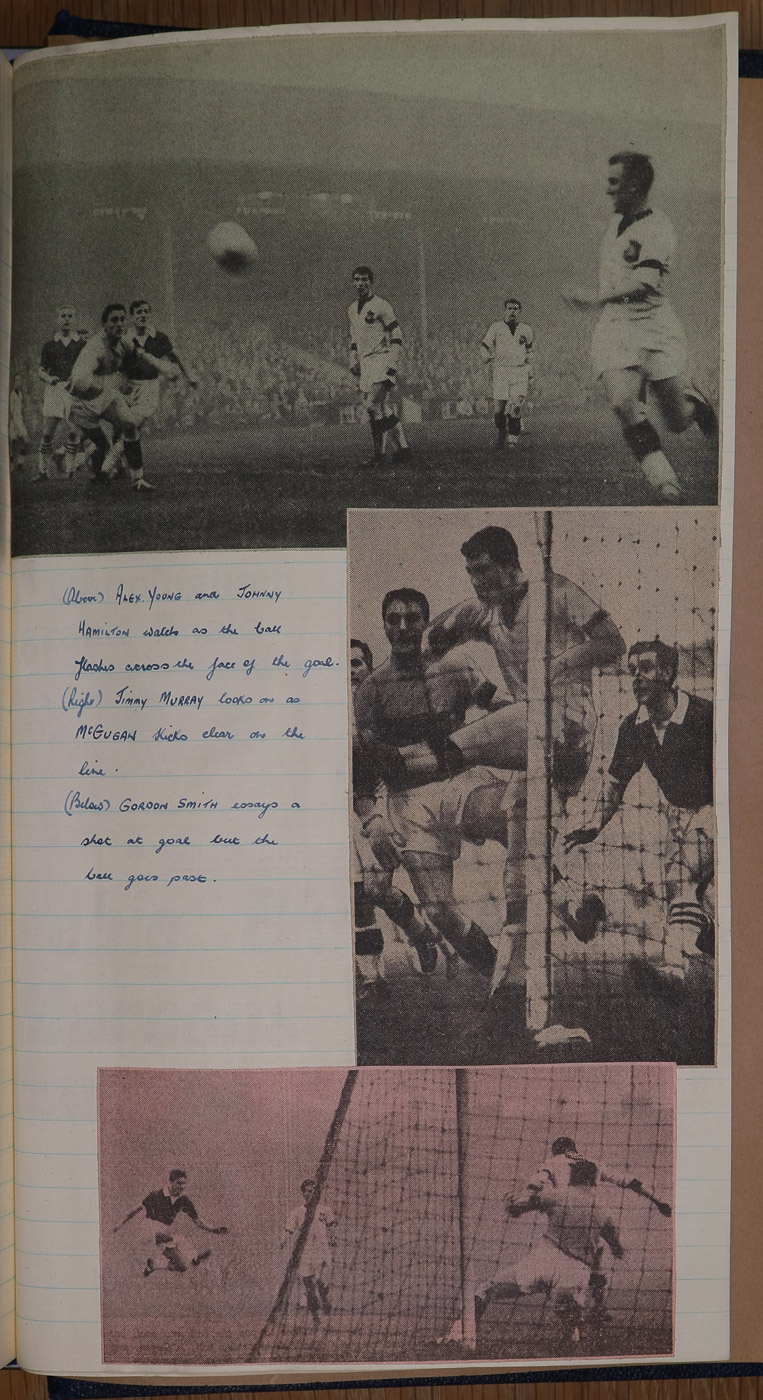 (Above) ALEX. YOUNG and JOHNNY
HAMILTON watch as the ball
flashes across the face of the goal.
(Right) Jimmy MURRAY looks on as
McGUGAN kicks clear on the
line.
(Below) GORDON SMITH essays a
shot at goal but the
ball goes past.